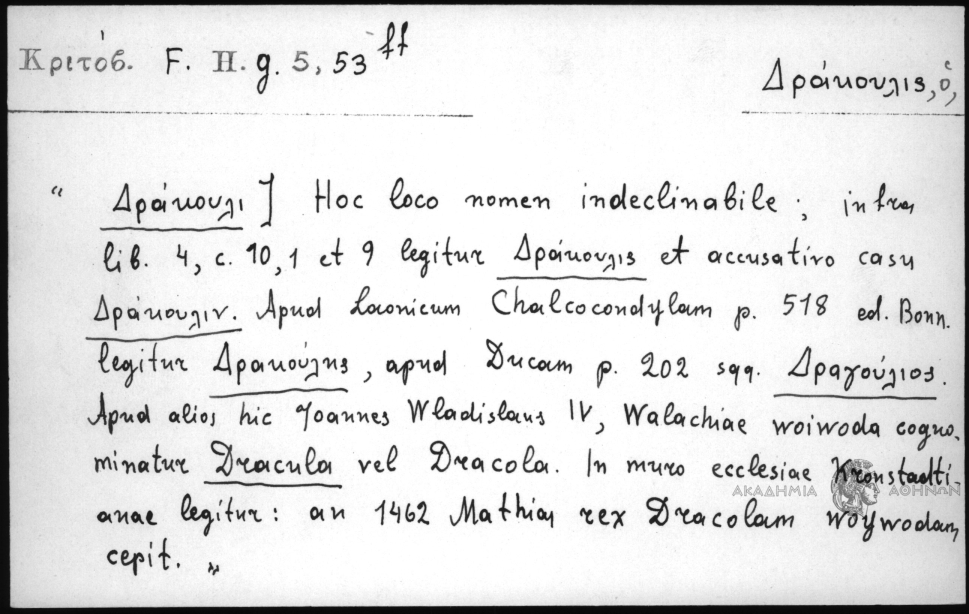 Κριτόβ. F. H. g. 5, 53 ff
Δράκουλις, ὁ,
" Δράκουλι] Hoc loco nomen indeclinabile; infra
lib. 4, c. 10, 1 et 9 legitur Δράκουλις et accusativo casu
Δράκουλιν. Apud Laonicum Chalcocondylam p. 518 ed. Bonn.
legitur Δρακούλης, apud Ducam p. 202 sqq. Δραγούλιος.
Apud alios hic Joannes Wladislaus IV, Walachiae woiwoda cogno-
minatur Dracula vel Dracola. In muro ecclesiae Kronstadti-
anae legitur: an 1462 Mathias rex Dracolam woywodam
cepit. "
ΑΚΑΔΗΜΙΑ ΑΘΗΝΩΝ